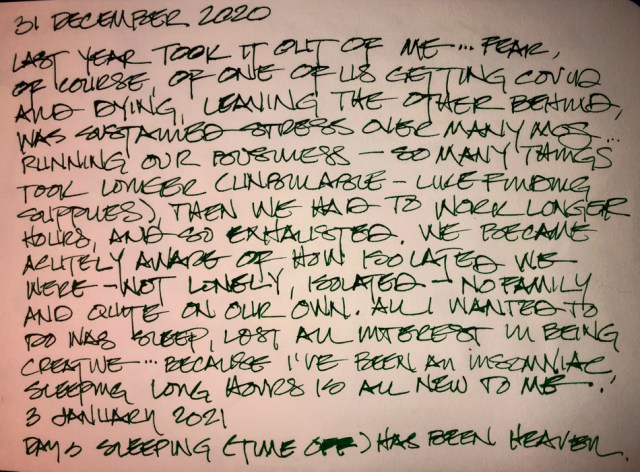 31 DECEMBER 2020
LAST YEAR TOOK IT OUT OF ME... FEAR,
OF COURSE, OF ONE OF US GETTING COVID
AND DYING, LEAVING THE OTHER BEHIND,
WAS SUSTAINED STRESS OVER MANY MOS...
RUNNING OUR BUSINESS – SO MANY THINGS
TOOK LONGER (UNBILLABLE – LIKE FINDING
SUPPLIES), THEN WE HAD TO WORK LONGER
HOURS, AND SO EXHAUSTED. WE BECAME
ACUTELY AWARE OF HOW ISOLATED WE
WERE – NOT LONELY, ISOLATED – NO FAMILY
AND QUITE ON OUR OWN. ALL I WANTED TO
DO WAS SLEEP, LOST ALL INTEREST IN BEING
CREATIVE... BECAUSE I'VE BEEN AN INSOMNIAC,
SLEEPING LONG HOURS IS ALL NEW TO ME...!
3 JANUARY 2021
DAYS SLEEPING (TIME OFF) HAS BEEN HEAVEN.